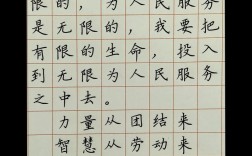 限的，为人民服务
是无限的，我要把
有限的生命，投入
到无限为人民服务
之中去。
力量从团结来
智慧从劳动来